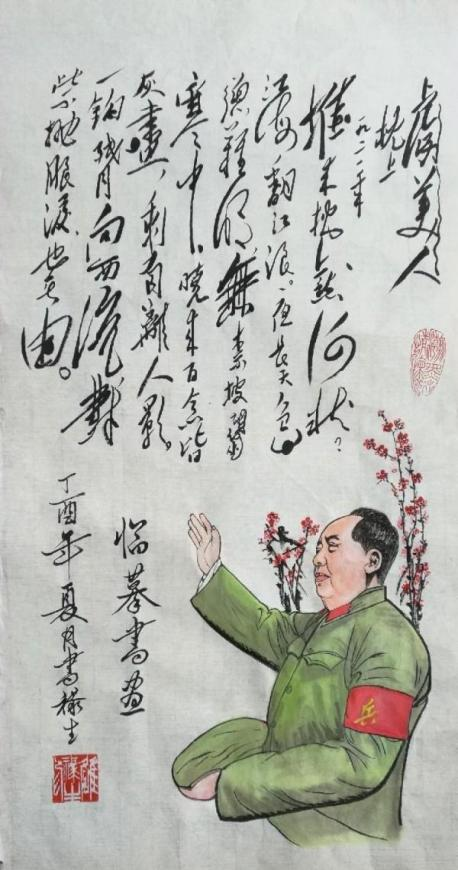 虞美人
枕上
一九二一年
堆来枕上愁何状?
江海翻江浪。夜长天色
总难明,無奈披
寒中。晓来百念皆
灰尽,剩有离人影。
一钩残月向西流,對
此不抛眼泪也无由。
临摹書画
丁酉年夏月書禄生
兵